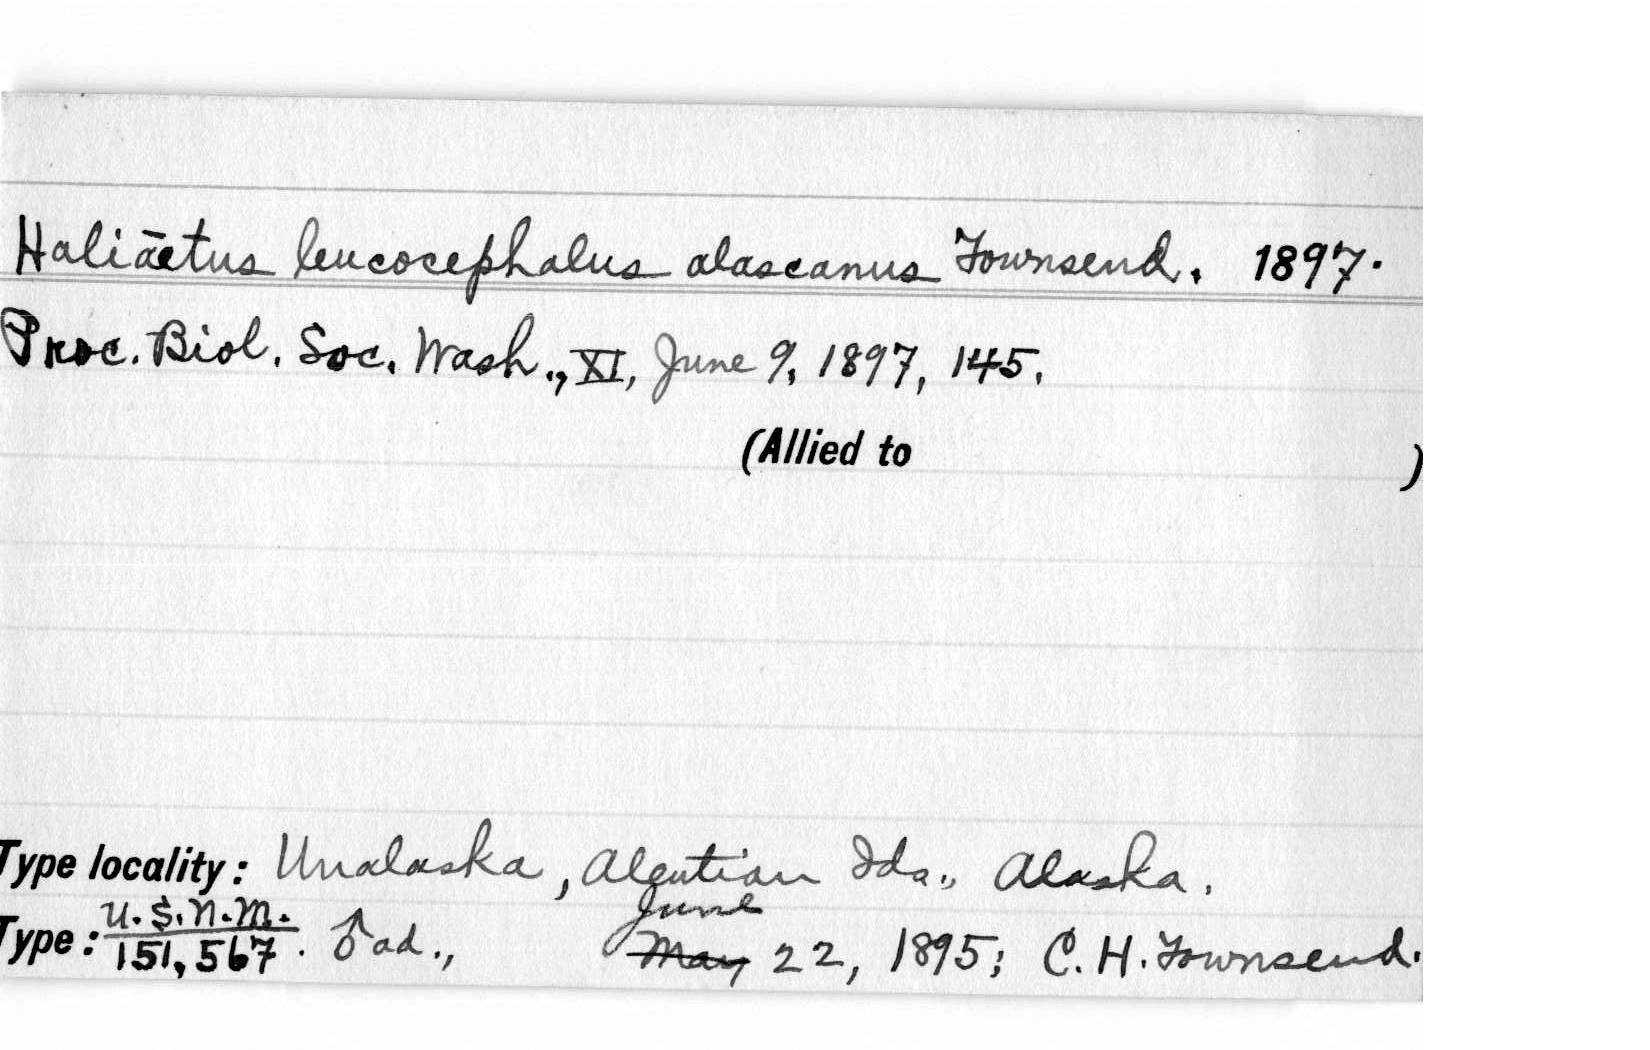 Haliāetus leucocephalus alascanus Townsend. 1897.
Proc. Biol. Soc. Wash., XI, June 9, 1897, 145.
(Allied to )
Type locality: Unalaska, Aleutian Ids., Alaska.
June
Type: U.S.N.M. 151,567. ♂ ad., May 22, 1895; C. H. Townsend.